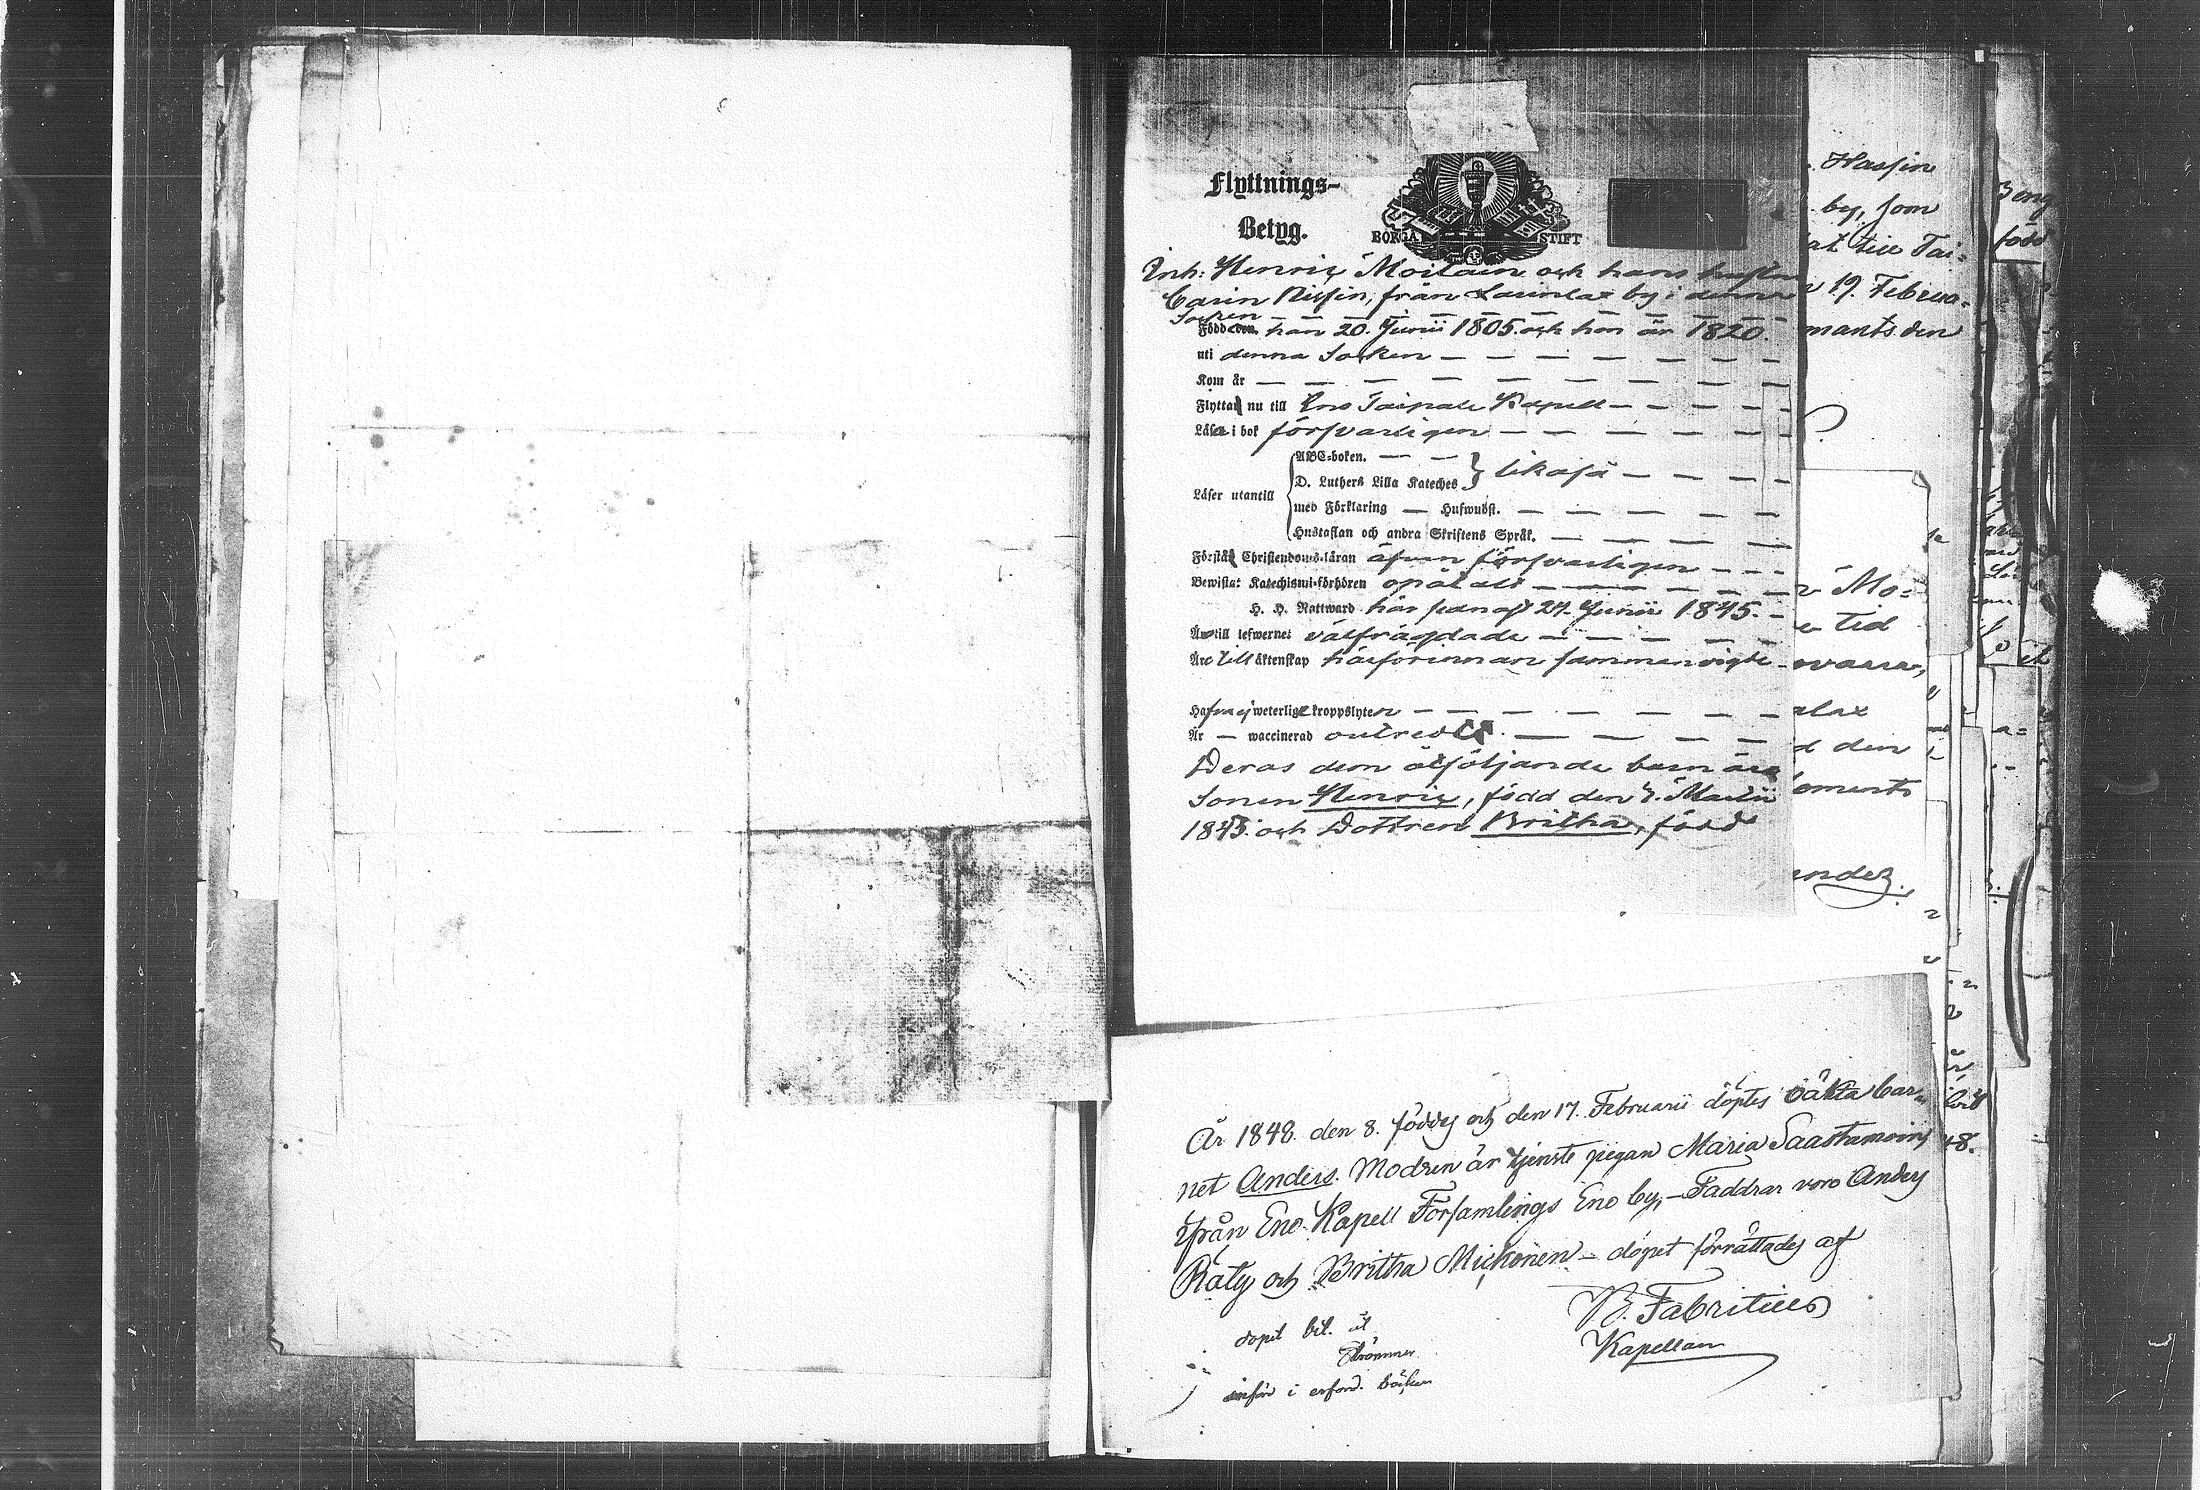 Flyttnings-
Betyg.
BORGÅ STIFT
Inh: Henric Moilain och hans hustru
Carin Nissin, från Laurila by i denna
Socken
Född han 20. Junii 1805. och hon år 1820.
uti denna Socken
Kom år
Flytta nu till Eno Taipale Kapell
Läsa i bok försvarligen
ABC-boken.
D. Luthers Lilla Kateches likaså
Läser utantill
med Förklaring — Hufwudst.
Hustaflan och andra Skriftens Språk.
Förstå Christendoms-läran äfven försvarligen
Bewistat Katechismi-förhören opåtalt
H. H. Nattward här sednast 27. Junii 1845.
Äro till lefwernet välfrägdade
Äro till äktenskap härförinnan sammanvigde
Hafva ej weterlige kroppslyten
Är — waccinerad outredt.
Deras dem åtföljande barn äro
Sonen Henric, född den 7. Martii
1843. och Dottren Britha, född
Hassin
by, som
till Tai=
19. Februa=
mants den
Mo=
tid
den
År 1848. den 8. föddes och den 17. Februarii döptes oäkta bar-
net Anders. Modren är tjenste pigan Maria Saastamoin
från Eno Kapell Församlings Eno by, — Faddrar voro Anders
Räty och Britha Mickonen — dopet förrättades af
B. Fabritius
Kapellan
dopet bet. åt
införd i erford. böcker